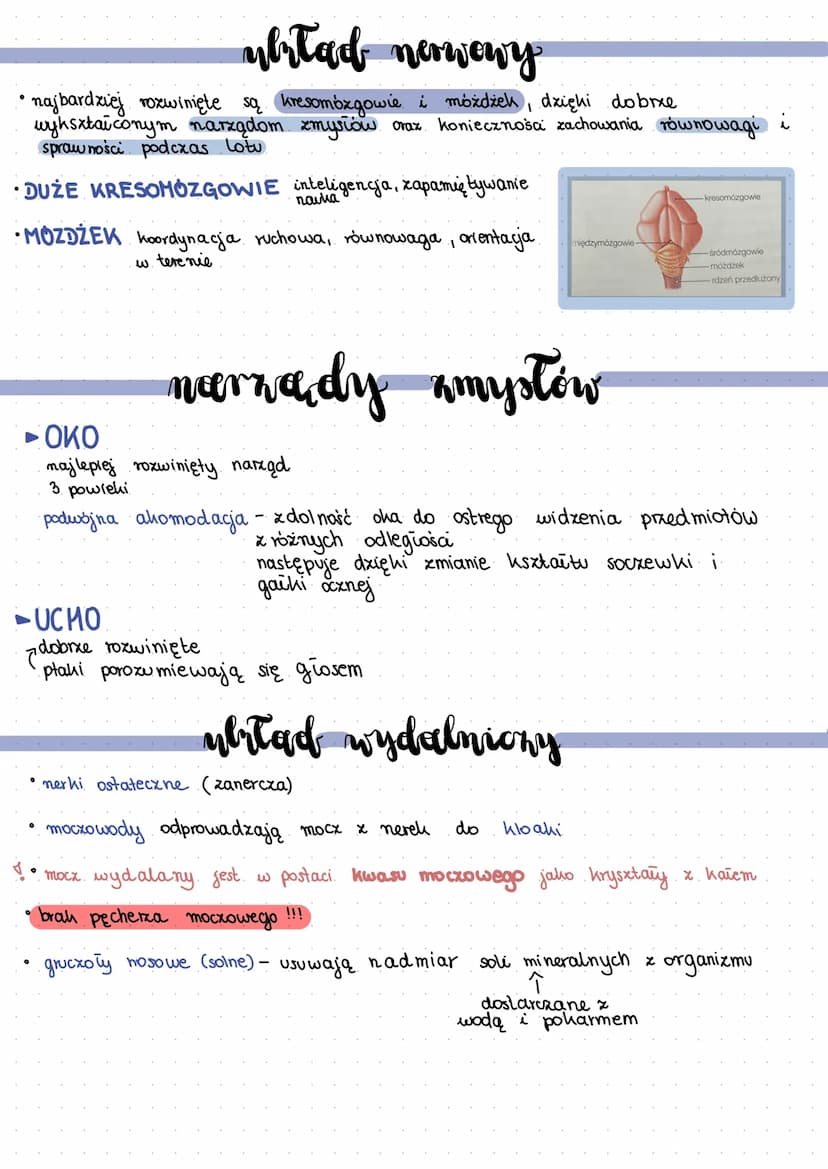 układ nerwowy
• najbardziej rozwinięte są kresomózgowie i móżdżek, dzięki dobrze
wykształconym narządom zmysłów oraz konieczności zachowania równowagi i
sprawności podczas lotu
• DUŻE KRESOMÓZGOWIE inteligencja, zapamiętywanie
nauka
• MÓŻDŻEK koordynacja ruchowa, równowaga, orientacja
w terenie
kresomózgowie
międzymózgowie
śródmózgowie
móżdżek
rdzeń przedłużony
narządy zmysłów
► OKO
najlepiej rozwinięty narząd
3 powieki
podwójna akomodacja - zdolność oka do ostrego widzenia przedmiotów
z różnych odległości
następuje dzięki zmianie kształtu soczewki i
gałki ocznej
► UCHO
dobrze rozwinięte
ptaki porozumiewają się głosem
układ wydalniczy
• nerki ostateczne (zanercza)
• moczowody odprowadzają mocz z nerek do kloaki
! • mocz wydalany jest w postaci kwasu moczowego jako kryształy z kałem
• brak pęcherza moczowego !!!
• gruczoły nosowe (solne) - usuwają nadmiar soli mineralnych z organizmu
↑
dostarczane z
wodą i pokarmem